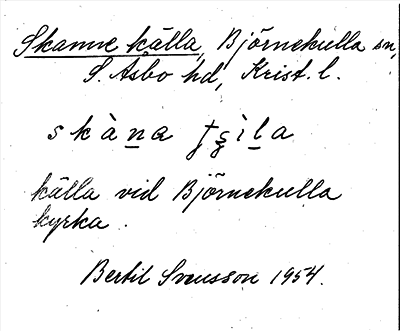 Skanne källa, Björnekulla sn,
S. Åsbo hd, Krist. l.
skàna
källa vid Björnekulla
kyrka.
Bertil Svensson 1954.